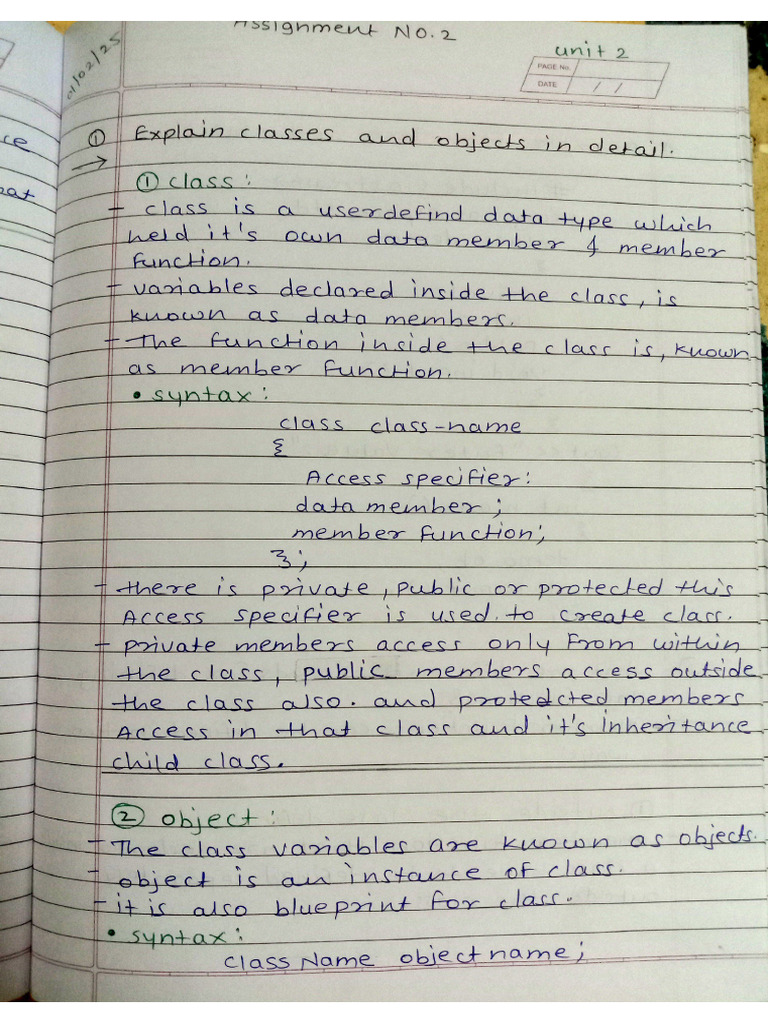 Assignment NO.2
01/02/25
unit 2
PAGE No.
DATE / /
① Explain classes and objects in detail.
→
① class:
- class is a userdefind data type which
held it's own data member & member
function.
- variables declared inside the class, is
known as data members.
- The function inside the class is, known
as member function.
• syntax:
class class-name
{
Access specifier:
data member;
member function;
};
- there is private, public or protected this
Access specifier is used. to create class.
- private members access only from within
the class, public members access outside
the class also. and protedcted members
Access in that class and it's inheritance
child class.
② object:
- The class variables are known as objects.
- object is an instance of class.
- it is also blueprint for class.
• syntax:
class Name object name;